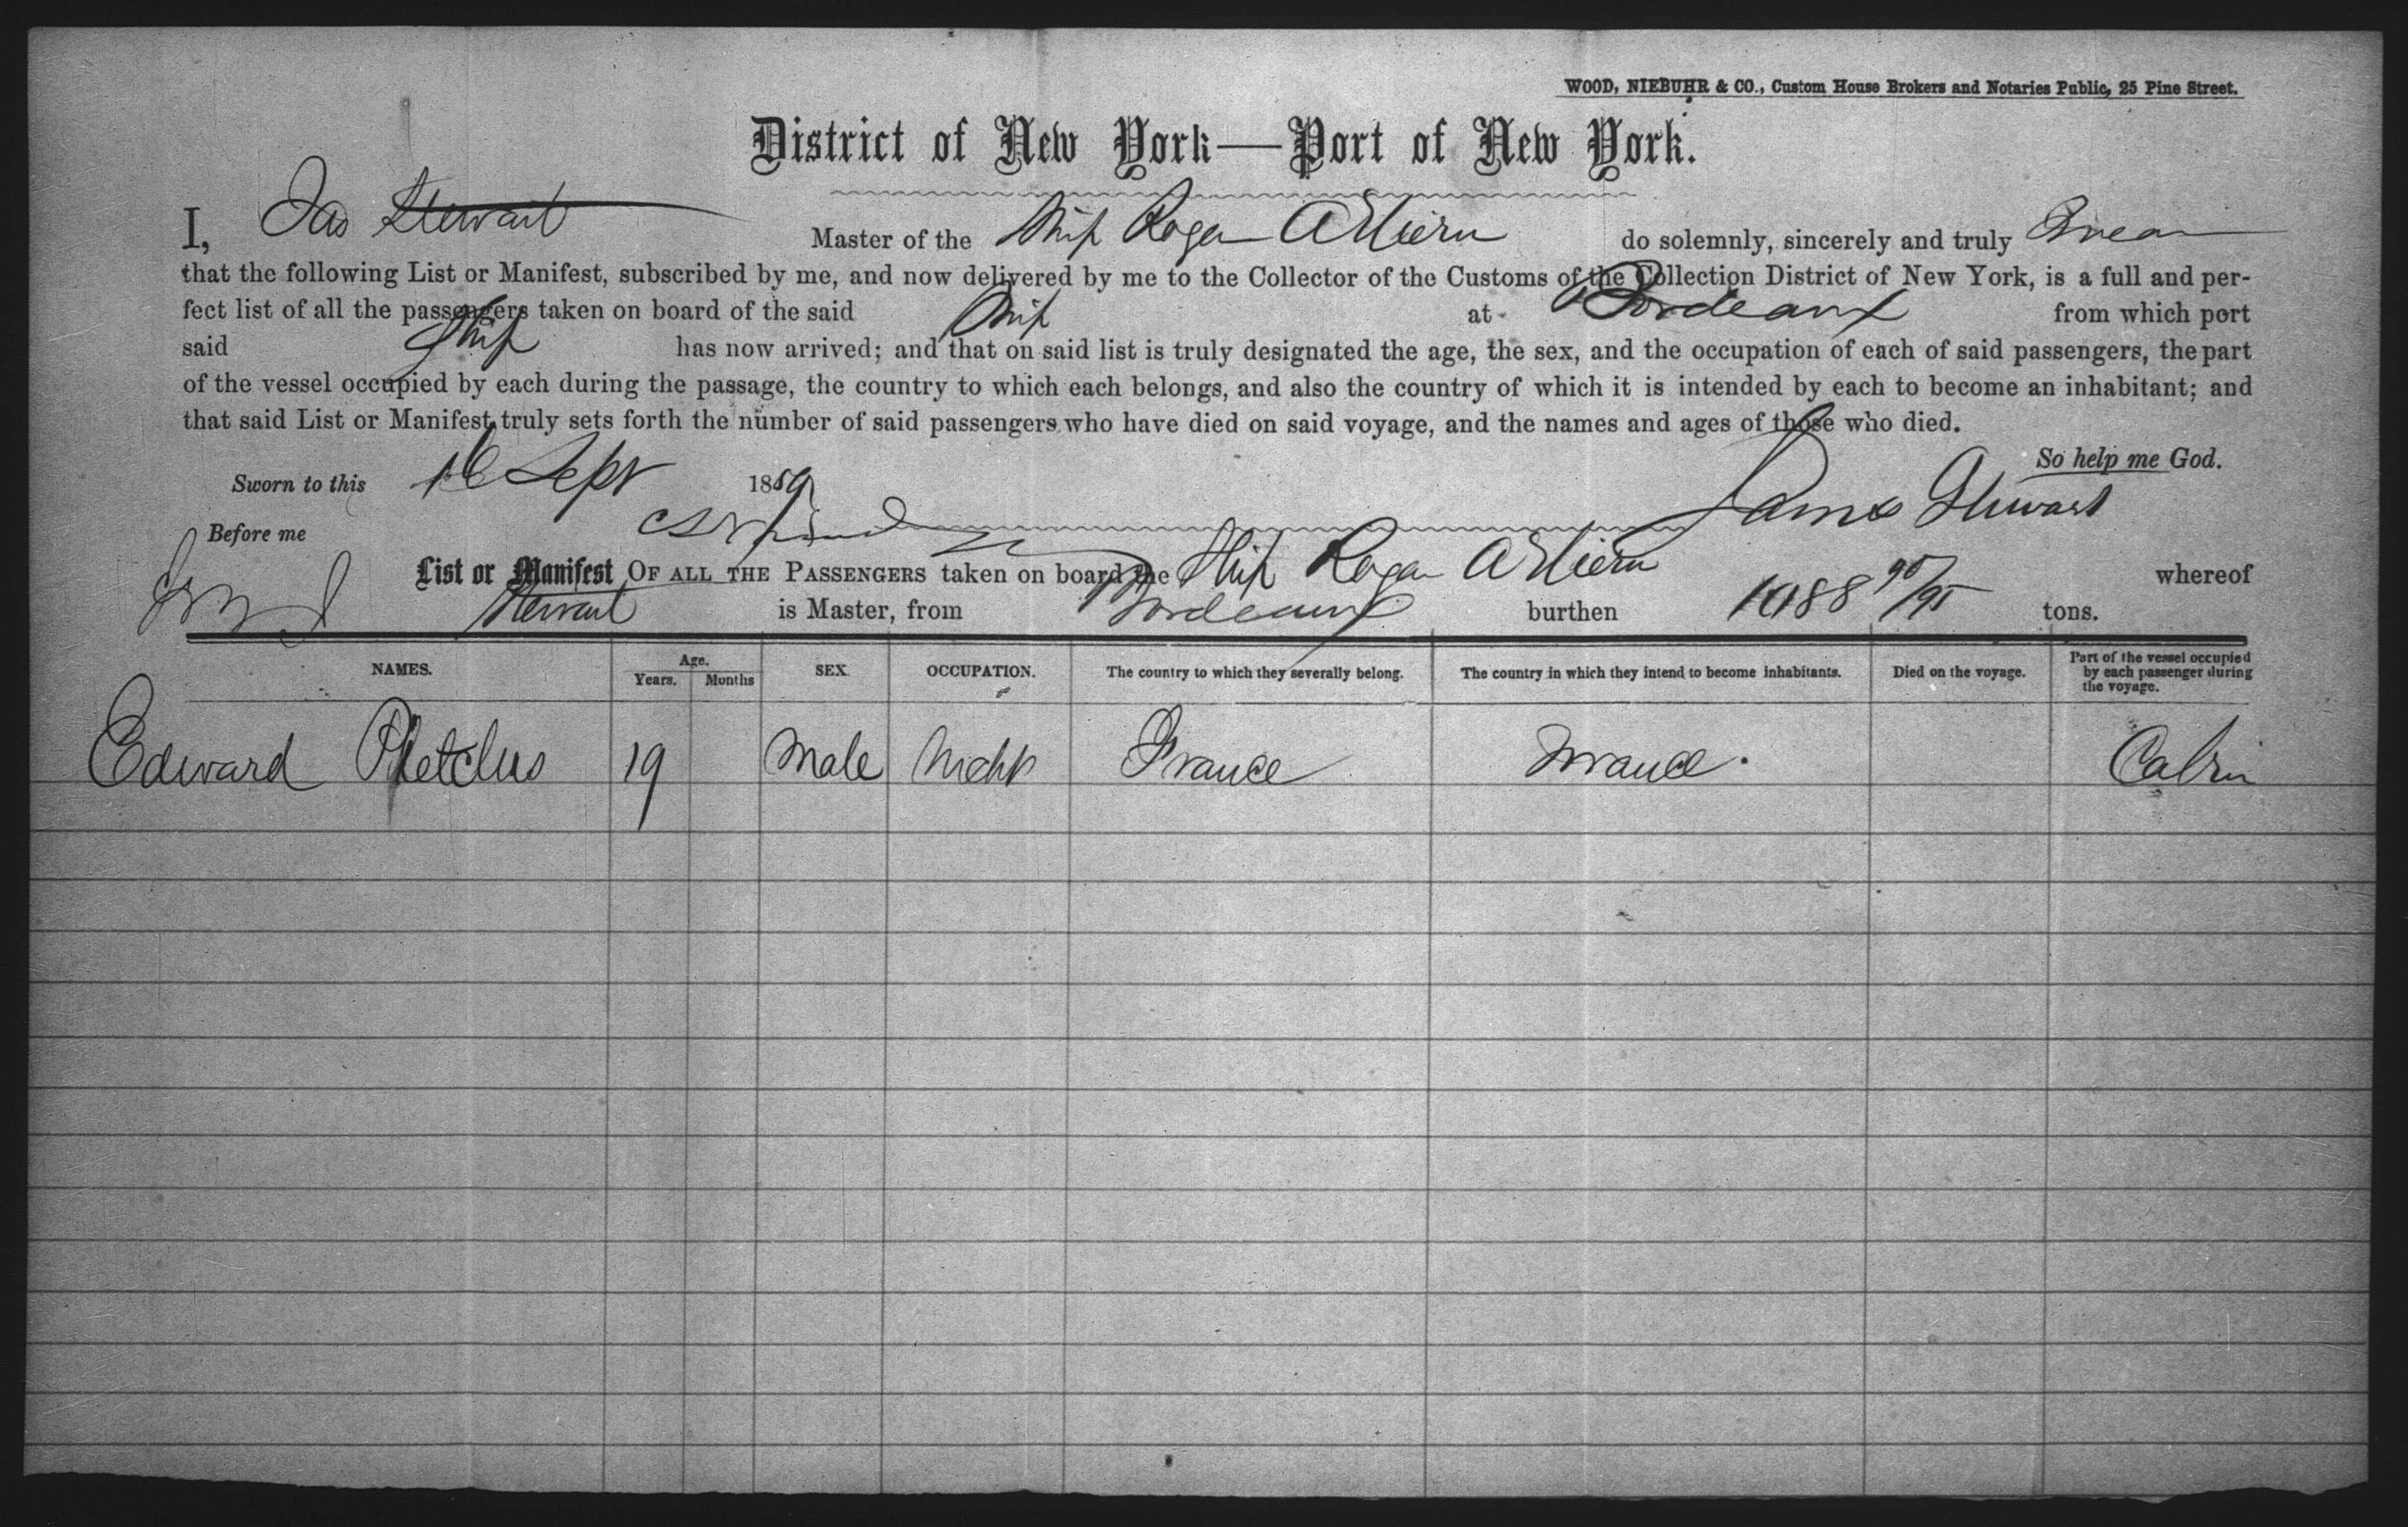 WOOD, NIEBUHR & CO., Custom House Brokers and Notaries Public, 25 Pine Street.
District of New York—Port of New York.
I, Jas Stewart Master of the Ship Roger A Hiern do solemnly, sincerely and truly Swear
that the following List or Manifest, subscribed by me, and now delivered by me to the Collector of the Customs of the Collection District of New York, is a full and per-
fect list of all the passengers taken on board of the said Ship at Bordeaux from which port
said Ship has now arrived; and that on said list is truly designated the age, the sex, and the occupation of each of said passengers, the part
of the vessel occupied by each during the passage, the country to which each belongs, and also the country of which it is intended by each to become an inhabitant; and
that said List or Manifest truly sets forth the number of said passengers who have died on said voyage, and the names and ages of those who died.
So help me God.
Sworn to this 16 Sept 1859
James Stewart
Before me
List or Manifest OF ALL THE PASSENGERS taken on board the Ship Roger A Hiern whereof
Stewart is Master, from Bordeaux burthen 1088 90/95 tons.
NAMES. Age. Years. Months SEX. OCCUPATION. The country to which they severally belong. The country in which they intend to become inhabitants. Died on the voyage. Part of the vessel occupied by each passenger during the voyage.
Edward 19 Male France France. Cabin